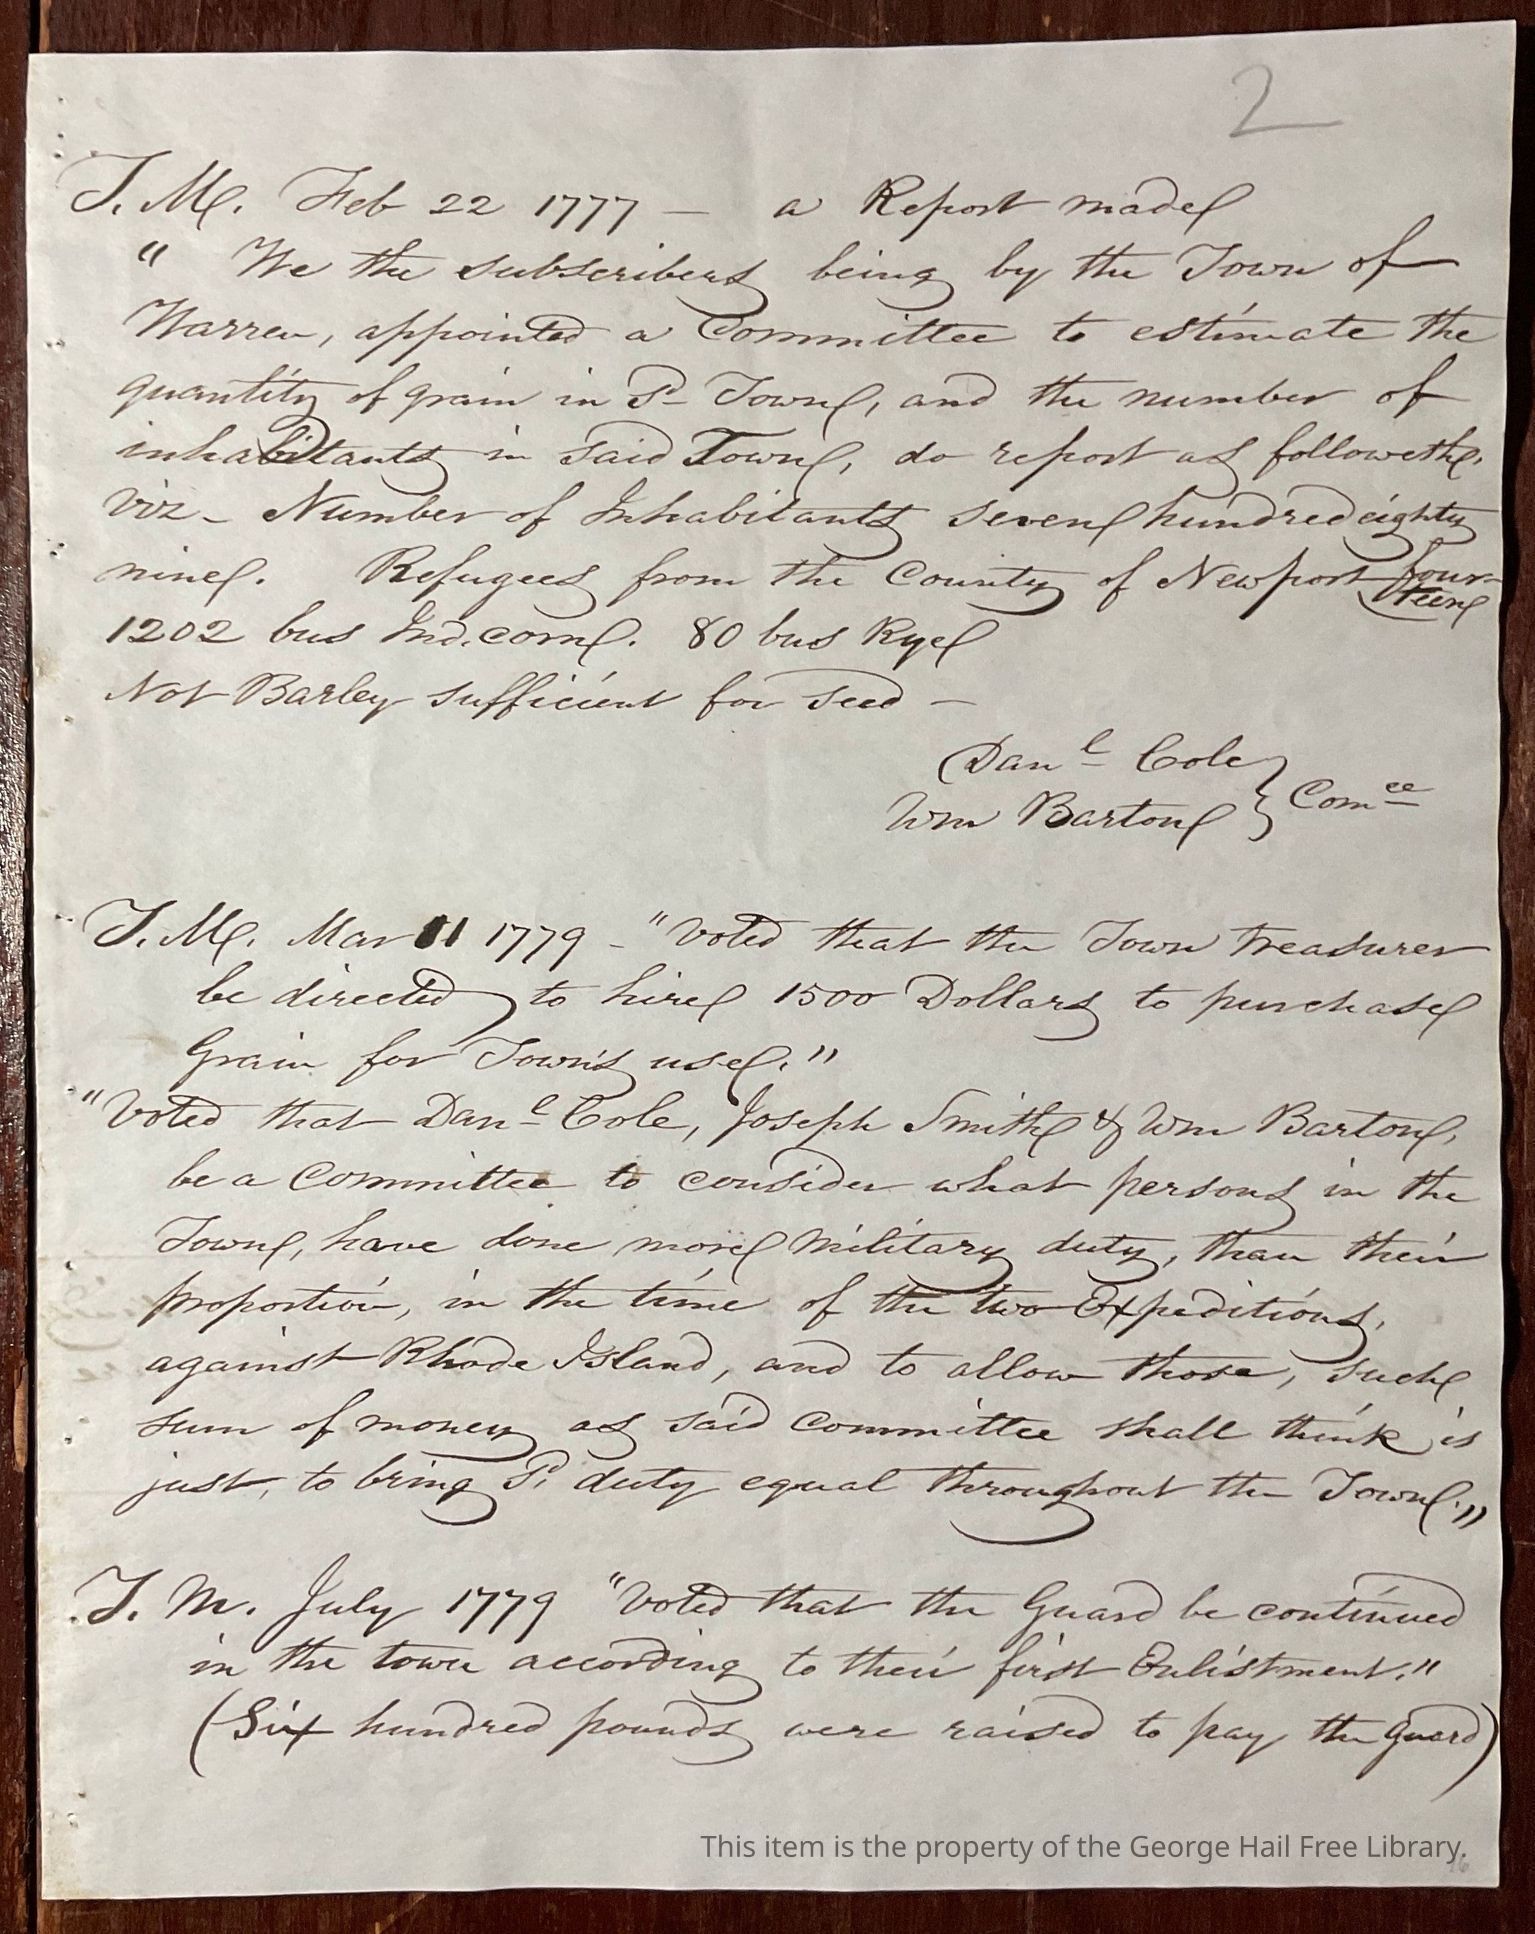 2
T. M. Feb 22 1777 — a Report made
" We the subscribers being by the Town of
Warren, appointed a Committee to estimate the
quantity of grain in Sd Town, and the number of
inhabitants in said Town, do report as followeth,
viz - Number of Inhabitants seven hundred eighty
nine. Refugees from the County of Newport four-
teen
1202 bus Ind. corn. 80 bus Rye
Not Barley sufficient for seed —
Danl Cole
Wm Barton } Comee
T. M. Mar 11 1779 - "Voted that the Town Treasurer
be directed to hire 1500 Dollars to purchase
Grain for Town's use."
"Voted that Danl Cole, Joseph Smith & Wm Barton,
be a Committee to consider what persons in the
Town, have done more Military duty, than their
proportion, in the time of the two Expeditions,
against Rhode Island, and to allow those, such
sum of money as said Committee shall think is
just, to bring Sd duty equal throughout the Town."
T. M. July 1779 "Voted that the Guard be continued
in the town according to their first Enlistment."
(Six hundred pounds were raised to pay the guard)
This item is the property of the George Hail Free Library.
16